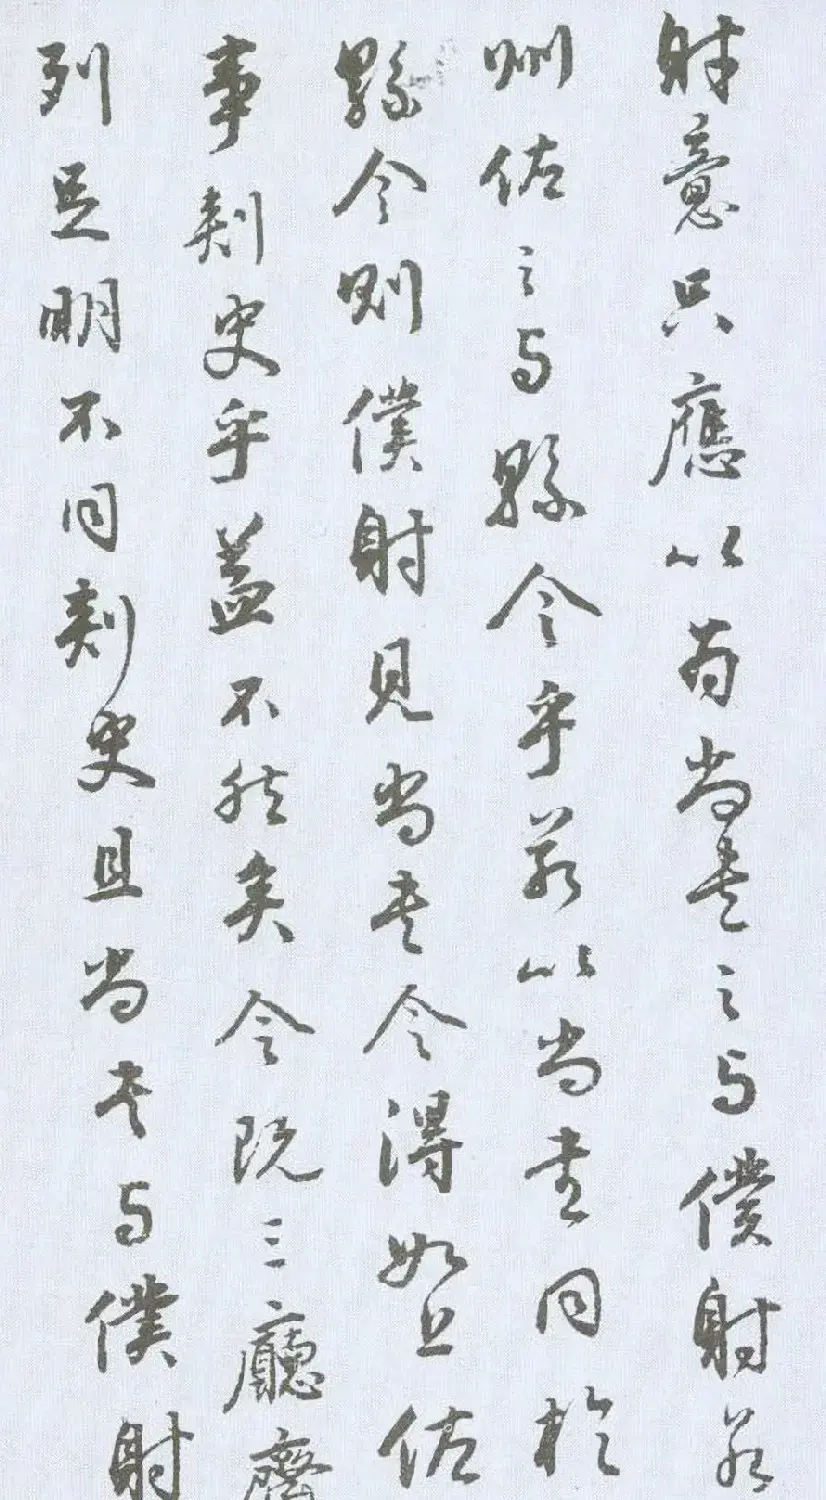 射意只應以為尚書之與僕射若
州佐之與縣令乎若以尚書同於
縣令則僕射見尚書令得如上佐
事刺史乎益不然矣今既三廳齊
列足明不同刺史且尚書與僕射